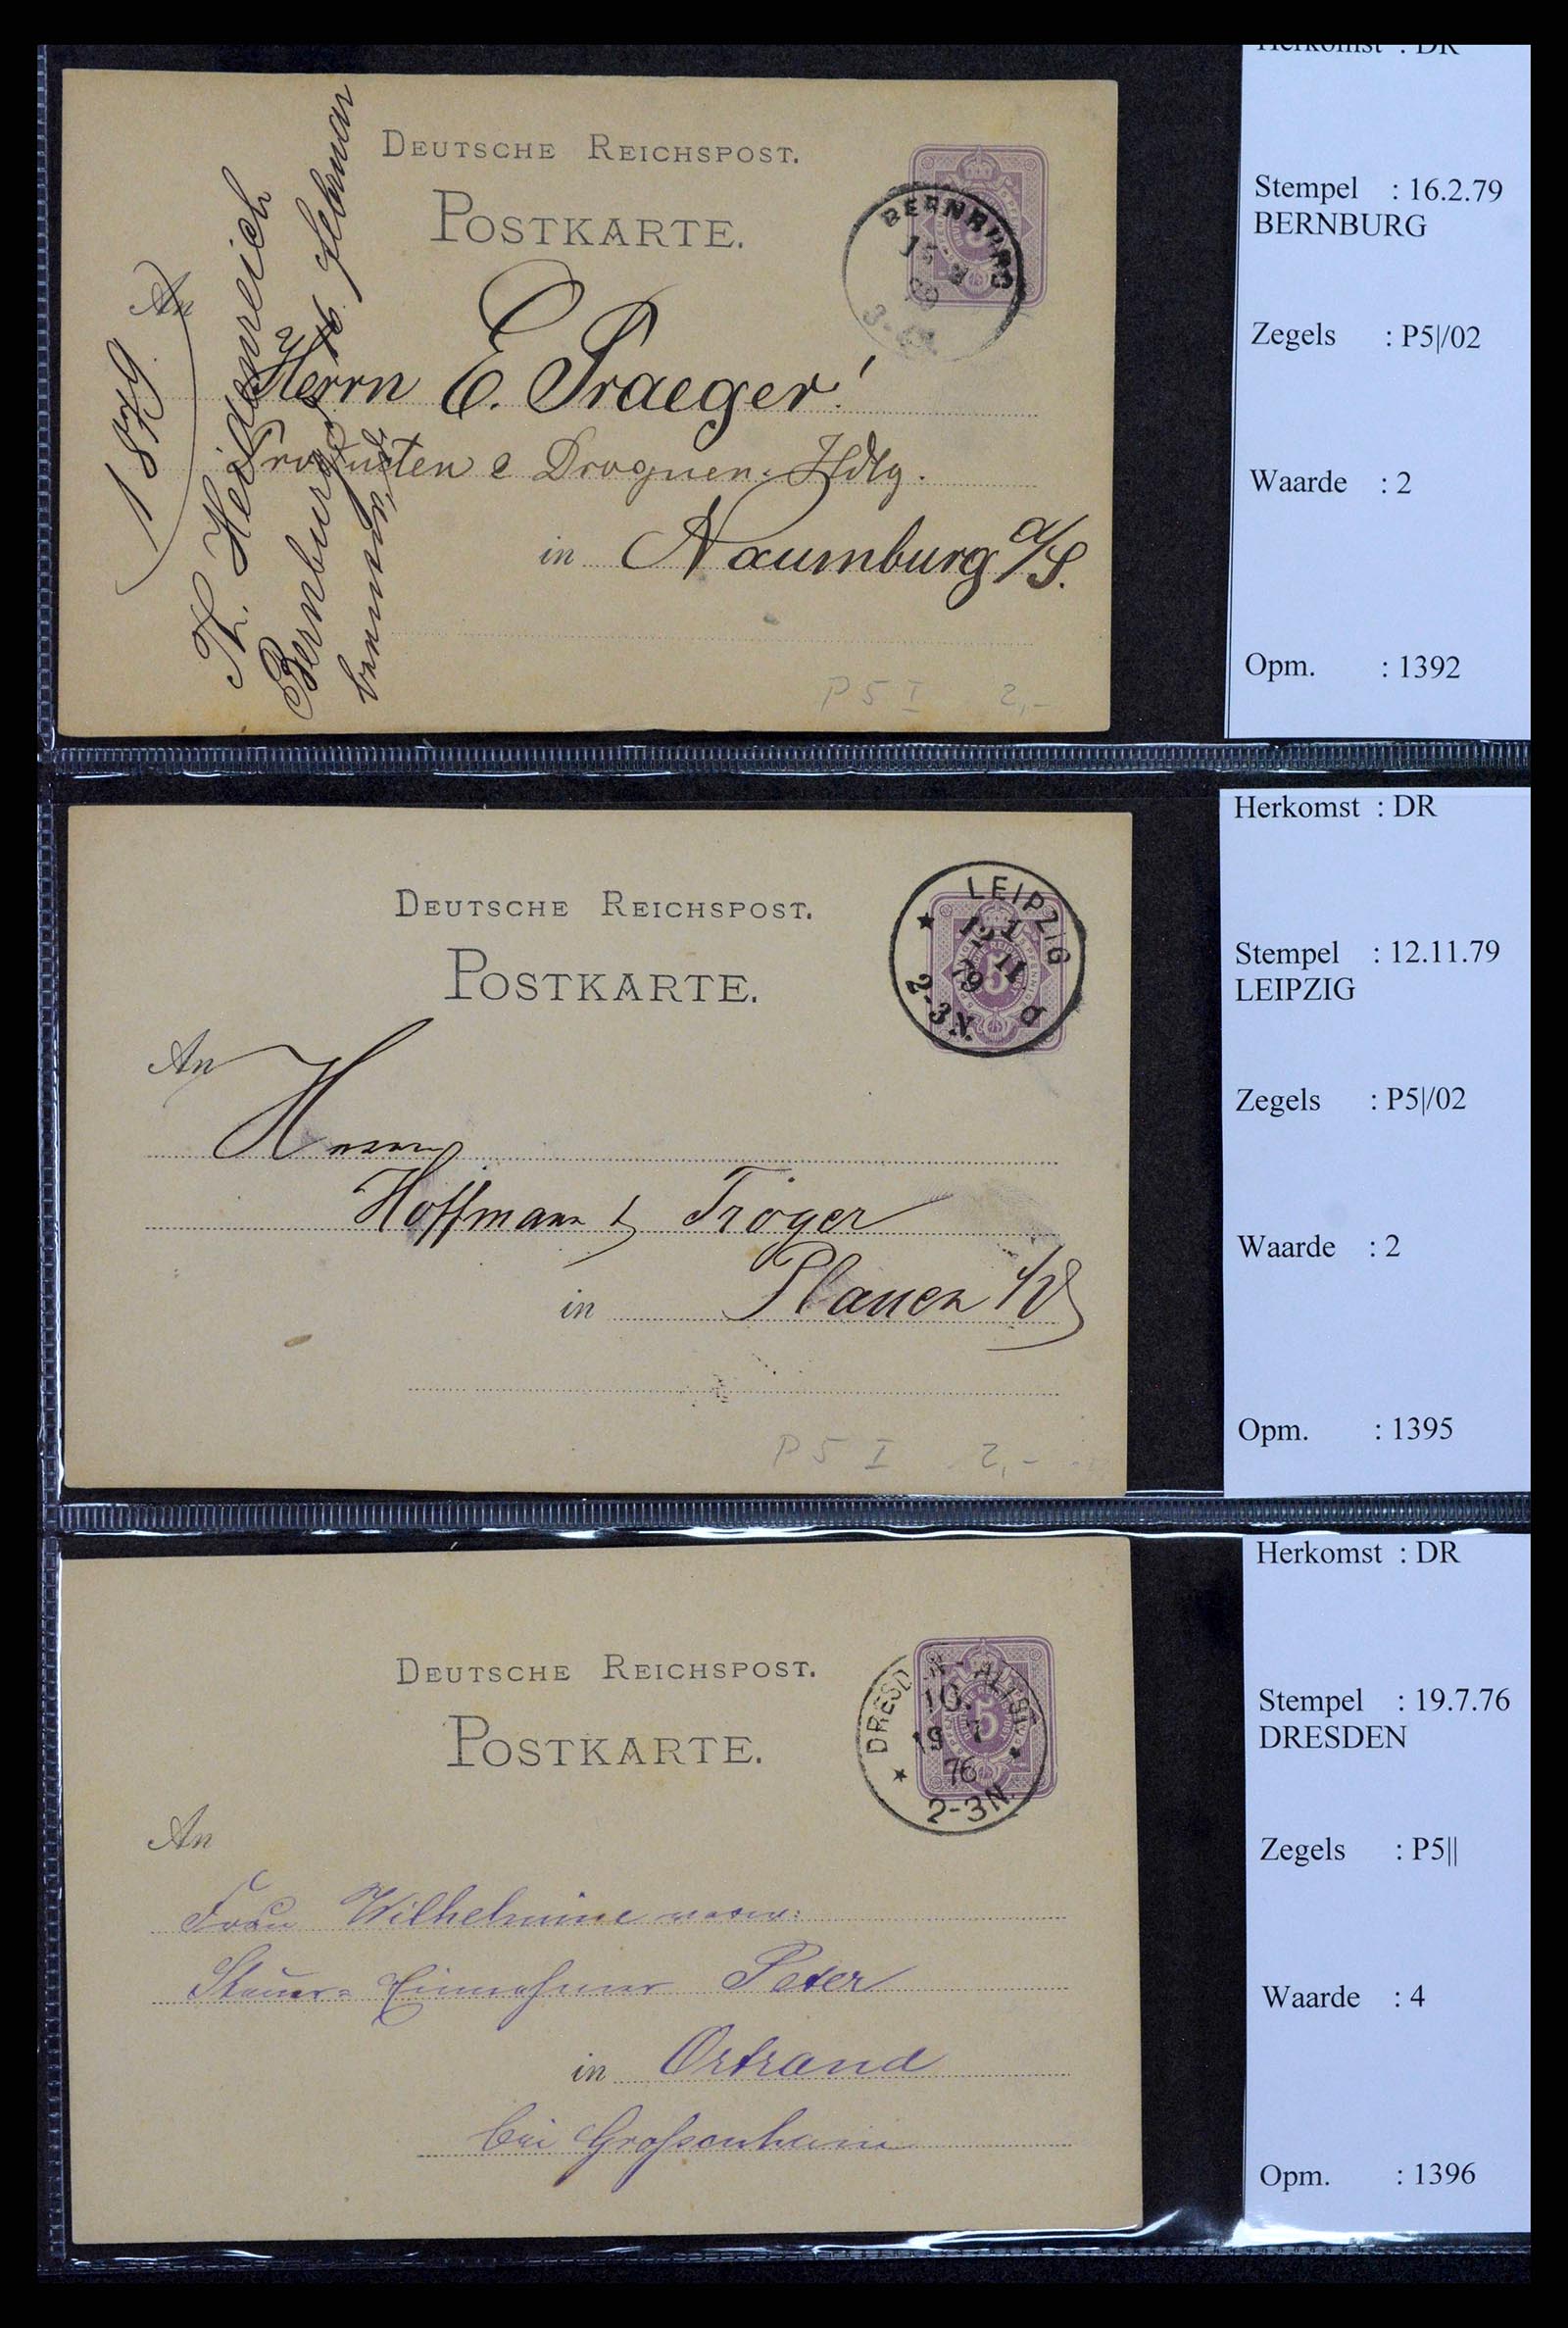 Herkomst : DR
DEUTSCHE REICHSPOST.
POSTKARTE.
BERNBURG
An
Herrn E. Praeger!
Producten & Droguen-Hdlg.
in Naumburg a/S.
1879.
Th. Heidenreich
Bernburg, 16. Februar
P 5 I 2,-
Stempel : 16.2.79
BERNBURG
Zegels : P5|/02
Waarde : 2
Opm. : 1392
DEUTSCHE REICHSPOST.
POSTKARTE.
LEIPZIG
12 11
79
2-3 N.
An
Herren
Hoffmann & Tröger
in Plauen i/V
P 5 I 2,-
Herkomst : DR
Stempel : 12.11.79
LEIPZIG
Zegels : P5|/02
Waarde : 2
Opm. : 1395
DEUTSCHE REICHSPOST.
POSTKARTE.
DRESDEN-ALTST.
10.
19 7
76
2-3 N.
5
An
Frau Wilhelmine
Steuer-Einnehmer Peter
in Ortrand
bei Großenhain
Herkomst : DR
Stempel : 19.7.76
DRESDEN
Zegels : P5||
Waarde : 4
Opm. : 1396